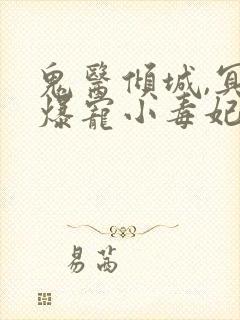 鬼醫傾城,冥
爆寵小毒妃
易茜